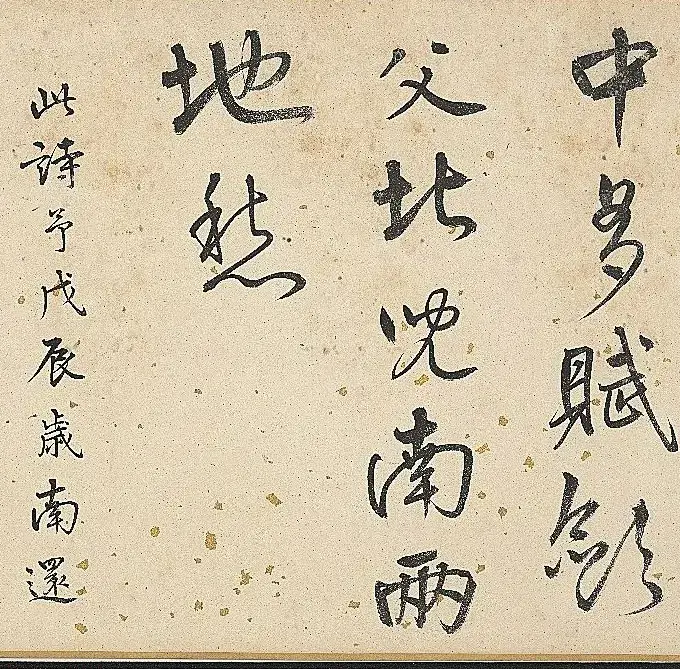 中多賦歛
父北兒南兩
地愁
此詩予戊辰歲南還